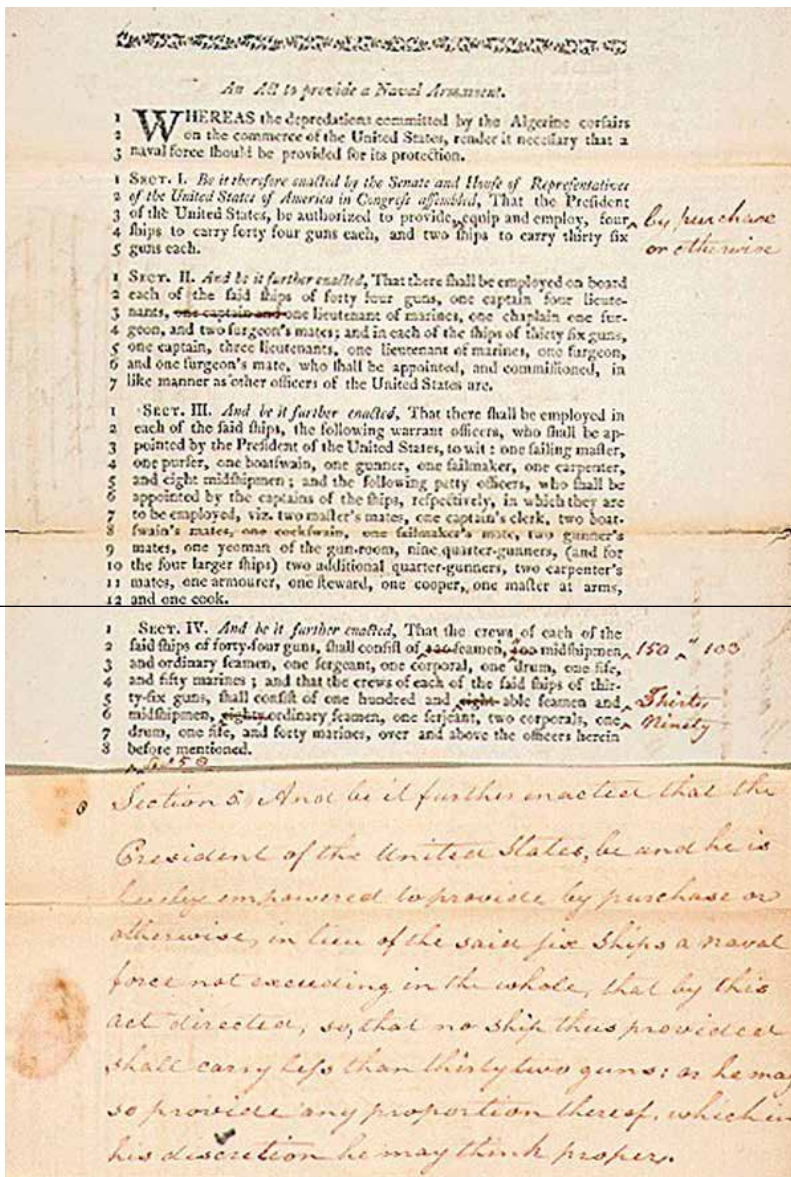 An Act to provide a Naval Armament.
1 WHEREAS the depredations committed by the Algerine corsairs
2 on the commerce of the United States, render it necessary that a
3 naval force should be provided for its protection.
1 SECT. I. Be it therefore enacted by the Senate and House of Representatives
2 of the United States of America in Congress assembled, That the President
3 of the United States, be authorized to provide, equip and employ, four ^ by purchase
4 ships to carry forty four guns each, and two ships to carry thirty six or otherwise
5 guns each.
1 SECT. II. And be it further enacted, That there shall be employed on board
2 each of the said ships of forty four guns, one captain four lieute-
3 nants, one captain and one lieutenant of marines, one chaplain one sur-
4 geon, and two surgeon's mates; and in each of the ships of thirty six guns,
5 one captain, three lieutenants, one lieutenant of marines, one surgeon,
6 and one surgeon's mate, who shall be appointed, and commissioned, in
7 like manner as other officers of the United States are.
1 SECT. III. And be it further enacted, That there shall be employed in
2 each of the said ships, the following warrant officers, who shall be ap-
3 pointed by the President of the United States, to wit: one sailing master,
4 one purser, one boatswain, one gunner, one sailmaker, one carpenter,
5 and eight midshipmen; and the following petty officers, who shall be
6 appointed by the captains of the ships, respectively, in which they are
7 to be employed, viz. two master's mates, one captain's clerk, two boat-
8 swain's mates, one cockswain, one sailmaker's mate, two gunner's
9 mates, one yeoman of the gun-room, nine quarter-gunners, (and for
10 the four larger ships) two additional quarter-gunners, two carpenter's
11 mates, one armourer, one steward, one cooper, one master at arms,
12 and one cook.
1 SECT. IV. And be it further enacted, That the crews of each of the
2 said ships of forty-four guns, shall consist of seamen, midshipmen ^ 150 ^ 103
3 and ordinary seamen, one sergeant, one corporal, one drum, one fife,
4 and fifty marines; and that the crews of each of the said ships of thir-
5 ty-six guns, shall consist of one hundred and eight able seamen and ^ Thirty
6 midshipmen, eighty ordinary seamen, one serjeant, two corporals, one ^ Ninety
7 drum, one fife, and forty marines, over and above the officers herein
8 before mentioned.
Section 5 And be it further enacted that the
President of the United States, be and he is
hereby empowered to provide by purchase or
otherwise, in lieu of the said six ships a naval
force not exceeding in the whole, that by this
act directed, so, that no ship thus provided
shall carry less than thirty two guns: or he may
so provide any proportion thereof, which in
his discretion he may think proper.